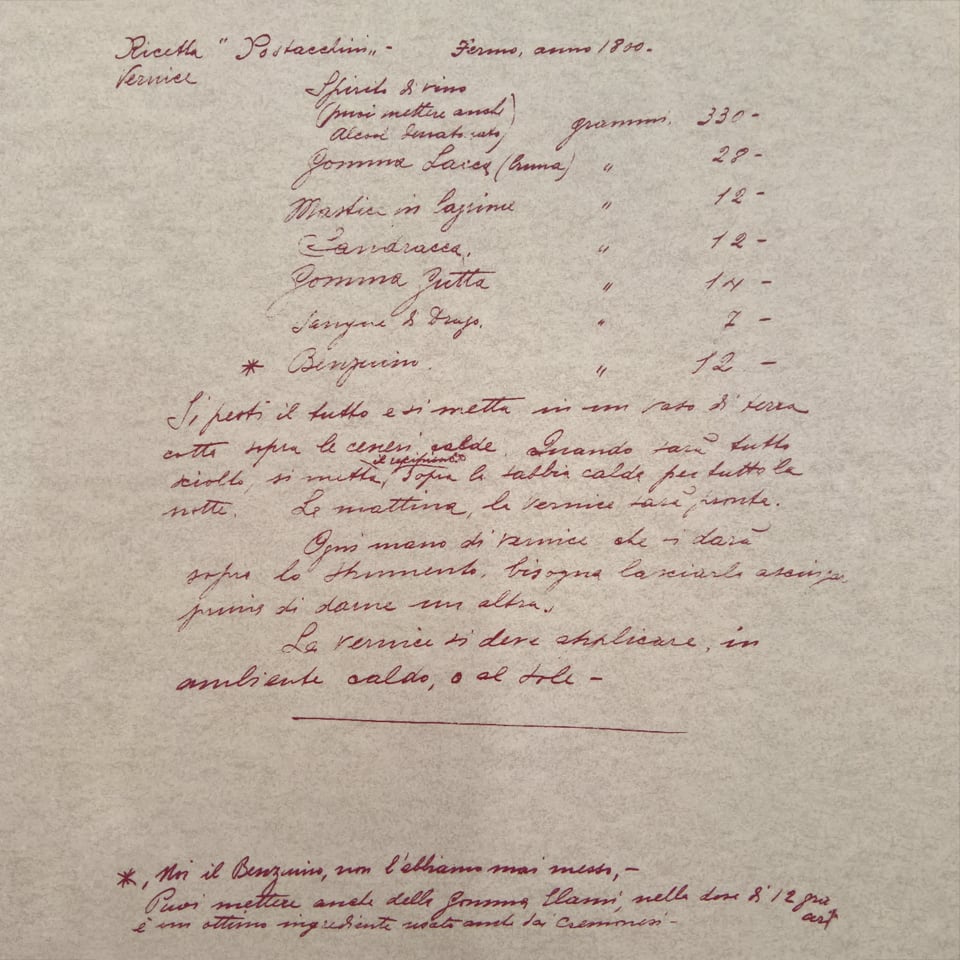 Ricetta "Postacchini" - Fermo, anno 1800-
Vernice
Spirito di vino
(puoi mettere anche
Alcool denaturato) grammi. 330-
Gomma Lacca (bruna) " 28-
Mastice in lagrime " 12-
Sandracca. " 12-
Gomma Gutta " 14-
Sangue di Drago. " 7-
* Benzuino. " 12-
Si pesti il tutto e si metta in un vaso di terra
cotta sopra le ceneri calde. Quando sarà tutto
il recipiente
sciolto, si metta, sopra la sabbia calda per tutto la
notte. La mattina, la vernice sarà pronta.
Ogni mano di vernice che si darà
sopra lo strumento, bisogna lasciarla
prima di darne un altra.
La vernice si deve applicare, in
ambiente caldo, o al sole-
*, Noi il Benzuino, non l'abbiamo mai messo,-
Puoi mettere anche della Gomma Elami, nella dose di 12
è un ottimo ingrediente usato anche dai Cremonesi-